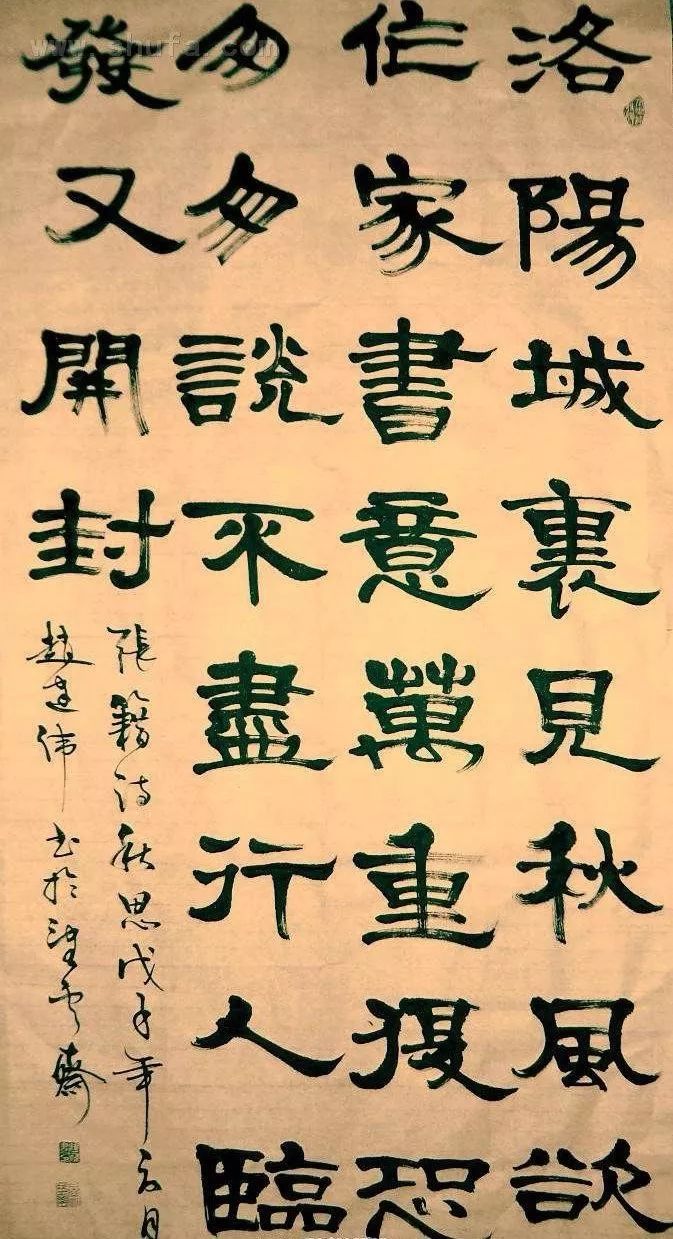 洛陽城裏見秋風欲
作家書意萬重復恐
匆匆説不盡行人臨
發又開封
張籍詩秋思戊子年月
趙建偉书於雲齋
www.shufa.com